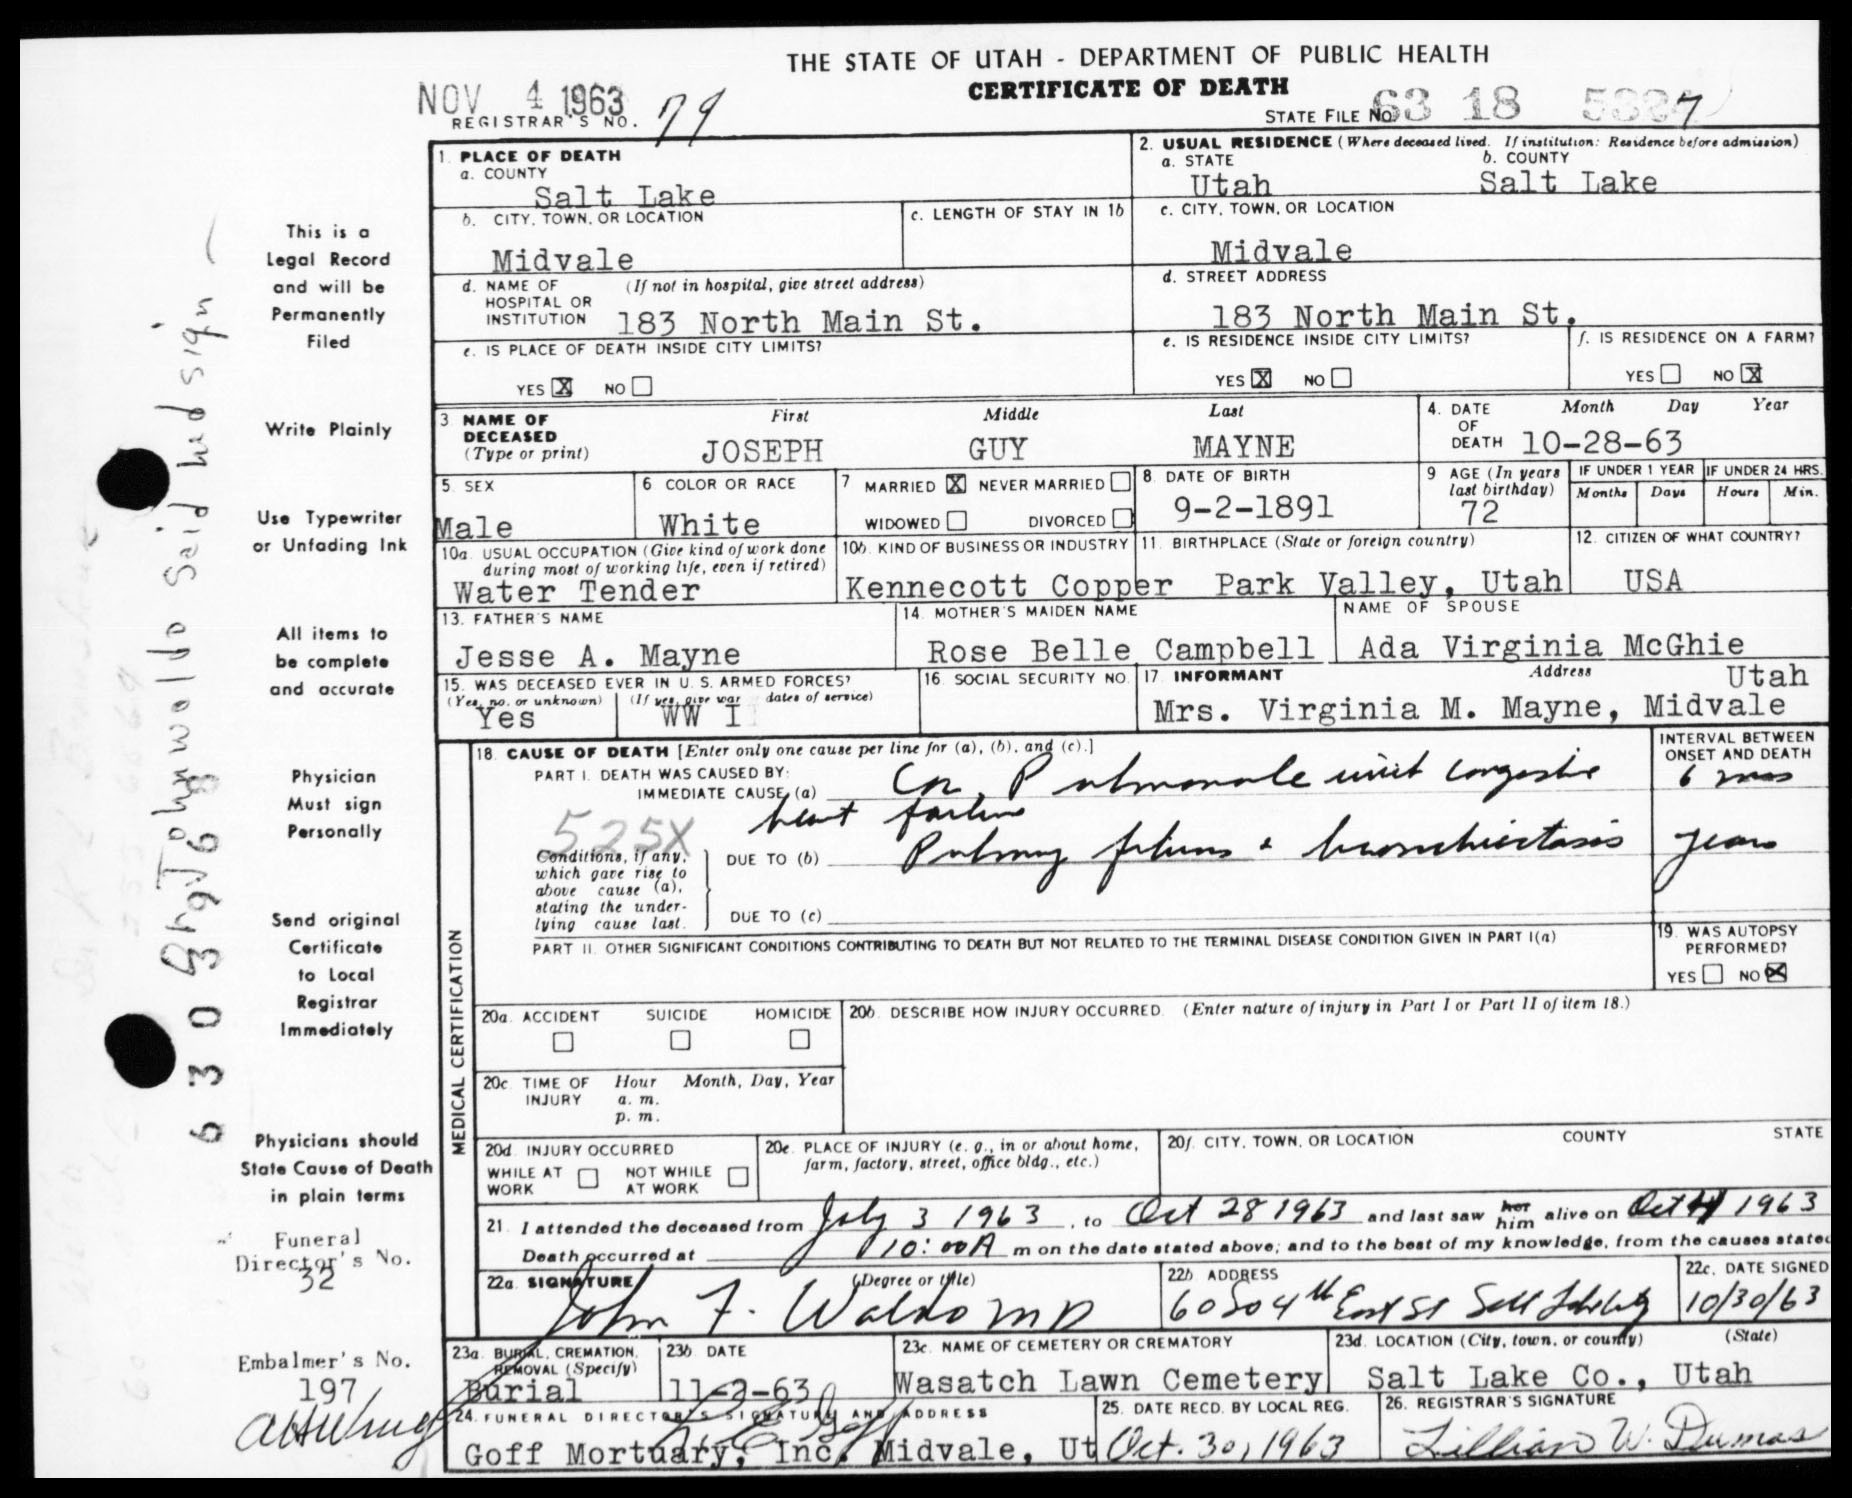 THE STATE OF UTAH - DEPARTMENT OF PUBLIC HEALTH
CERTIFICATE OF DEATH
NOV 4 1963
REGISTRAR'S NO. 79
STATE FILE No. 63 18 5827
1. PLACE OF DEATH
a. COUNTY
Salt Lake
2. USUAL RESIDENCE (Where deceased lived. If institution: Residence before admission)
a. STATE b. COUNTY
Utah Salt Lake
b. CITY, TOWN, OR LOCATION
Midvale
c. LENGTH OF STAY IN 1b
c. CITY, TOWN, OR LOCATION
Midvale
d. NAME OF (If not in hospital, give street address)
HOSPITAL OR
INSTITUTION 183 North Main St.
d. STREET ADDRESS
183 North Main St.
e. IS PLACE OF DEATH INSIDE CITY LIMITS?
YES X NO
e. IS RESIDENCE INSIDE CITY LIMITS?
YES X NO
f. IS RESIDENCE ON A FARM?
YES NO X
3 NAME OF DECEASED (Type or print)
First Middle Last
JOSEPH GUY MAYNE
4. DATE OF DEATH
Month Day Year
10-28-63
5. SEX
Male
6 COLOR OR RACE
White
7 MARRIED X NEVER MARRIED
WIDOWED DIVORCED
8 DATE OF BIRTH
9-2-1891
9 AGE (In years last birthday)
72
IF UNDER 1 YEAR
Months Days
IF UNDER 24 HRS.
Hours Min.
10a. USUAL OCCUPATION (Give kind of work done
during most of working life, even if retired)
Water Tender
10b. KIND OF BUSINESS OR INDUSTRY
Kennecott Copper
11. BIRTHPLACE (State or foreign country)
Park Valley, Utah
12. CITIZEN OF WHAT COUNTRY?
USA
13. FATHER'S NAME
Jesse A. Mayne
14. MOTHER'S MAIDEN NAME
Rose Belle Campbell
NAME OF SPOUSE
Ada Virginia McGhie
15. WAS DECEASED EVER IN U. S. ARMED FORCES?
(Yes, no, or unknown) (If yes, give war dates of service)
Yes WW I
16. SOCIAL SECURITY NO.
17. INFORMANT Address
Mrs. Virginia M. Mayne, Midvale Utah
MEDICAL CERTIFICATION
18. CAUSE OF DEATH [Enter only one cause per line for (a), (b), and (c).]
INTERVAL BETWEEN
ONSET AND DEATH
PART I. DEATH WAS CAUSED BY:
IMMEDIATE CAUSE (a) Cor Pulmonale with congestive
heart failure
6 mos
525X
Conditions, if any,
which gave rise to
above cause (a),
stating the under-
lying cause last.
DUE TO (b) Pulmonary fibrosis & bronchiectasis
years
DUE TO (c)
PART II. OTHER SIGNIFICANT CONDITIONS CONTRIBUTING TO DEATH BUT NOT RELATED TO THE TERMINAL DISEASE CONDITION GIVEN IN PART I(a)
19. WAS AUTOPSY
PERFORMED?
YES NO X
20a. ACCIDENT SUICIDE HOMICIDE
20b. DESCRIBE HOW INJURY OCCURRED. (Enter nature of injury in Part I or Part II of item 18.)
20c. TIME OF INJURY
Hour Month, Day, Year
a. m.
p. m.
20d. INJURY OCCURRED
WHILE AT WORK NOT WHILE AT WORK
20e. PLACE OF INJURY (e. g., in or about home,
farm, factory, street, office bldg., etc.)
20f. CITY, TOWN, OR LOCATION COUNTY STATE
21. I attended the deceased from July 3 1963, to Oct 28 1963 and last saw her him alive on Oct 1963
Death occurred at 10:00A m on the date stated above; and to the best of my knowledge, from the causes stated
22a. SIGNATURE (Degree or title)
John F. Waldo MD
22b ADDRESS
60 So 4th East St Salt Lake City
22c. DATE SIGNED
10/30/63
23a. BURIAL, CREMATION,
REMOVAL (Specify)
Burial
23b DATE
11-2-63
23c. NAME OF CEMETERY OR CREMATORY
Wasatch Lawn Cemetery
23d. LOCATION (City, town, or county) (State)
Salt Lake Co., Utah
24. FUNERAL DIRECTOR'S SIGNATURE AND ADDRESS
Goff Mortuary, Inc. Midvale, Ut
25. DATE RECD. BY LOCAL REG.
Oct. 30, 1963
26. REGISTRAR'S SIGNATURE
Lillian W. Dumas
This is a
Legal Record
and will be
Permanently
Filed
Write Plainly
Use Typewriter
or Unfading Ink
All items to
be complete
and accurate
Physician
Must sign
Personally
Send original
Certificate
to Local
Registrar
Immediately
Physicians should
State Cause of Death
in plain terms
Funeral
Director's No.
32
Embalmer's No.
197
John Waldo said he'd sign